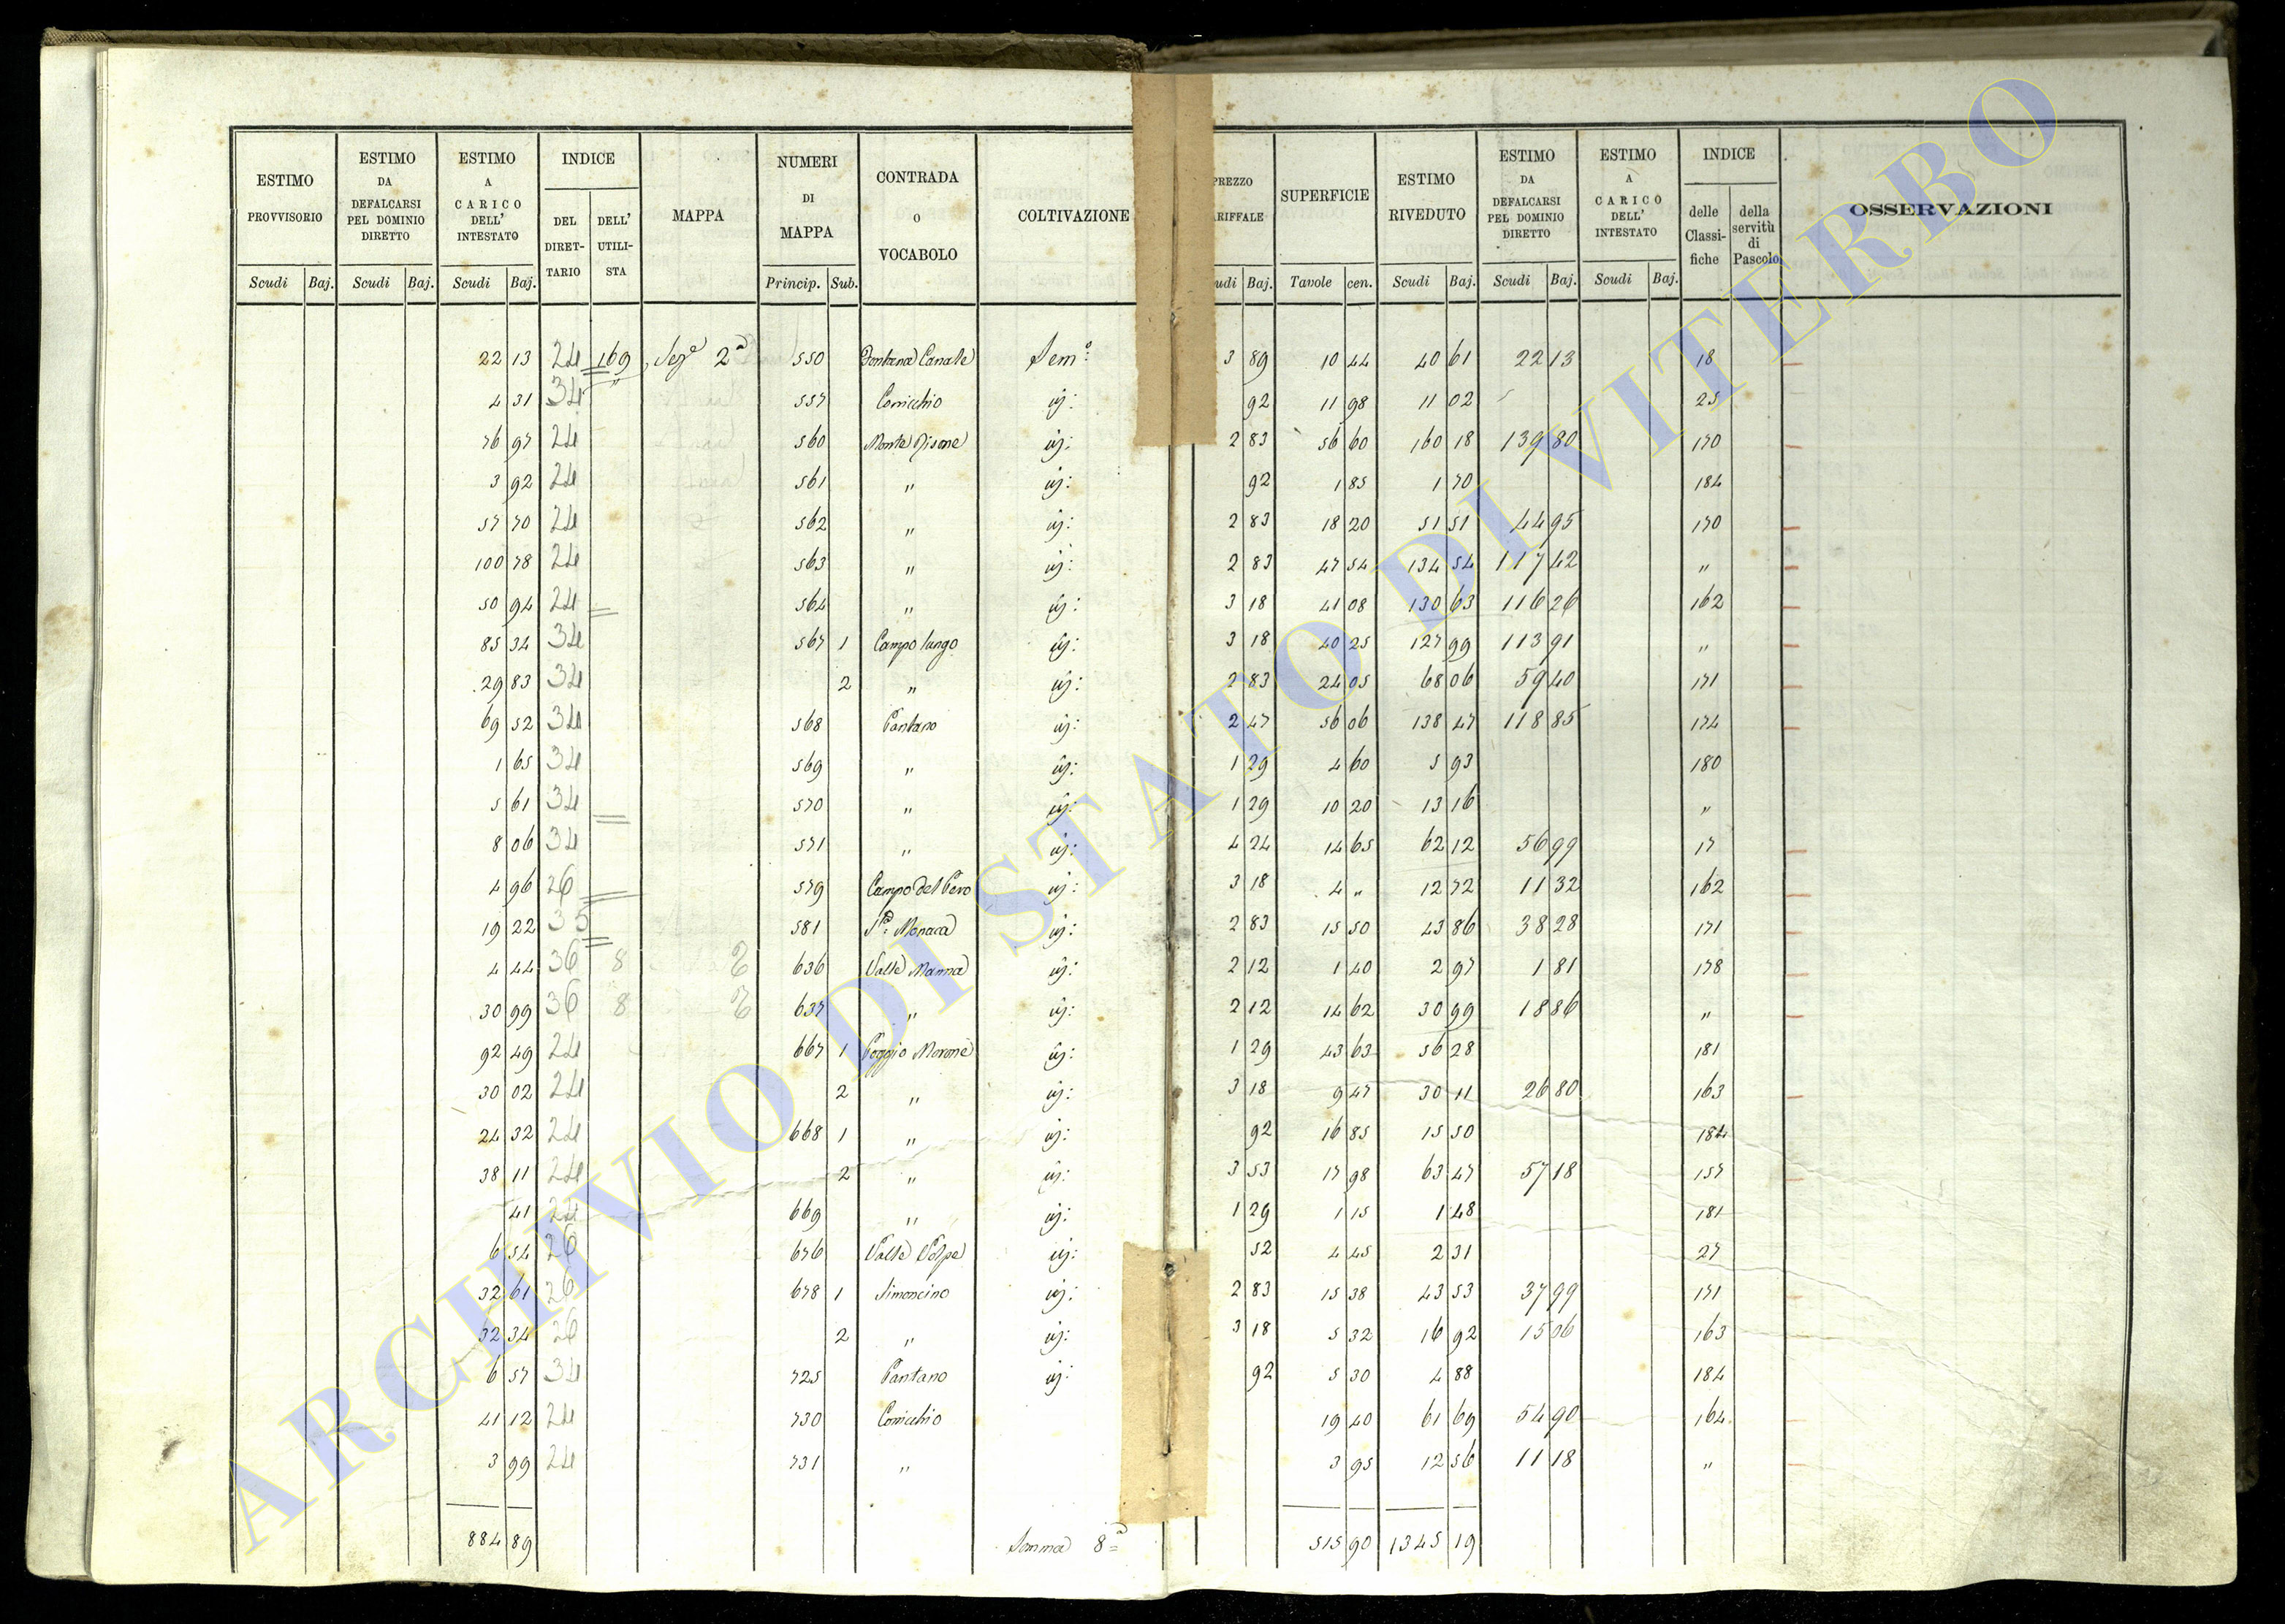 ESTIMO PROVVISORIO Scudi Baj. ESTIMO DA DEFALCARSI PEL DOMINIO DIRETTO Scudi Baj. ESTIMO A CARICO DELL' INTESTATO Scudi Baj. INDICE DEL DIRETTARIO DELL' UTILISTA MAPPA NUMERI DI MAPPA Princip. Sub. CONTRADA O VOCABOLO COLTIVAZIONE PREZZO TARIFFALE Scudi Baj. SUPERFICIE Tavole cen. ESTIMO RIVEDUTO Scudi Baj. ESTIMO DA DEFALCARSI PEL DOMINIO DIRETTO Scudi Baj. ESTIMO A CARICO DELL' INTESTATO Scudi Baj. INDICE delle Classifiche della servitù di Pascolo OSSERVAZIONI
22 13 24 169 Sez.e 2a 550 Fontana Canale Sem.o 3 89 10 44 40 61 22 13 18
4 31 34 " 557 Cornicchio id: 92 11 98 11 02 25
76 97 24 560 Monte Pisone id: 2 83 56 60 160 18 139 80 170
3 92 24 561 " id: 92 1 85 1 70 184
57 70 24 562 " id: 2 83 18 20 51 51 44 95 170
100 78 24 563 " id: 2 83 47 54 134 54 117 42 "
50 94 24 564 " id: 3 18 41 08 130 63 116 26 162
85 34 34 567 1 Campo lungo id: 3 18 40 25 127 99 113 91 "
29 83 34 2 " id: 2 83 24 05 68 06 59 40 171
69 52 34 568 Pantano id: 2 47 56 06 138 47 118 85 174
1 65 34 569 " id: 1 29 4 60 5 93 180
5 61 34 570 " id: 1 29 10 20 13 16 "
8 06 34 571 " id: 4 24 14 65 62 12 56 99 17
4 96 26 579 Campo del Pero id: 3 18 4 " 12 72 11 32 162
19 22 35 581 S.a Monaca id: 2 83 15 50 43 86 38 28 171
4 44 36 8 2 636 Valle Manna id: 2 12 1 40 2 97 1 81 178
30 99 36 8 2 637 " id: 2 12 14 62 30 99 18 86 "
92 49 24 667 1 Poggio Morone id: 1 29 43 63 56 28 181
30 02 24 2 " id: 3 18 9 47 30 11 26 80 163
24 32 24 668 1 " id: 92 16 85 15 50 184
38 11 24 2 " id: 3 53 17 98 63 47 57 18 157
41 24 669 " id: 1 29 1 15 1 48 181
6 54 26 676 Valle Volpe id: 52 4 45 2 31 27
32 61 26 678 1 Simoncino id: 2 83 15 38 43 53 37 99 171
32 34 26 2 " id: 3 18 5 32 16 92 15 06 163
6 57 34 725 Pantano id: 92 5 30 4 88 184
41 12 24 730 Cornicchio 19 40 61 69 54 90 164
3 99 24 731 " 3 95 12 56 11 18 "
884 89 Somma 8a 515 90 1345 19
ARCHIVIO DI STATO DI VITERBO